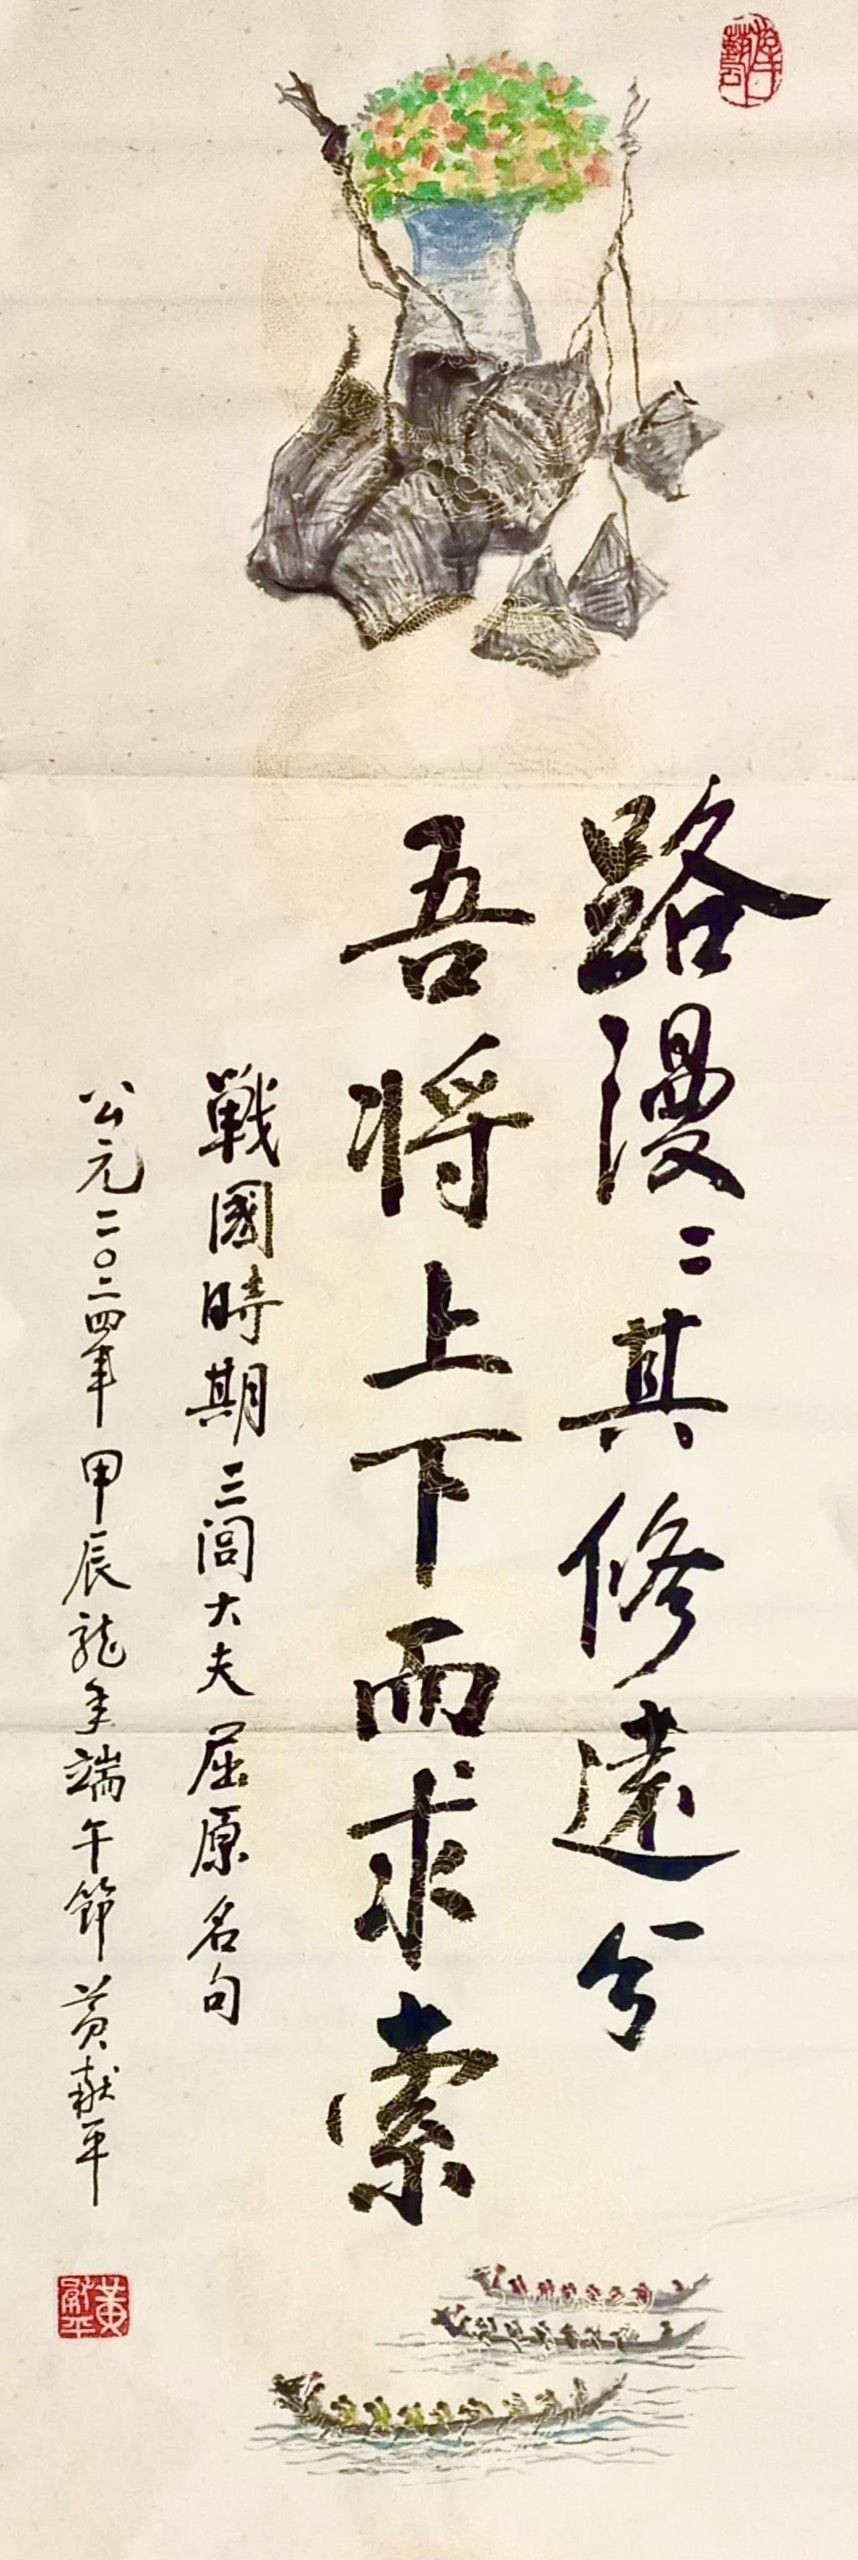 路漫〻其修遠兮
吾将上下而求索
戰國時期三閭大夫屈原名句
公元二〇二四年甲辰龙年端午節黄献平
黄献平